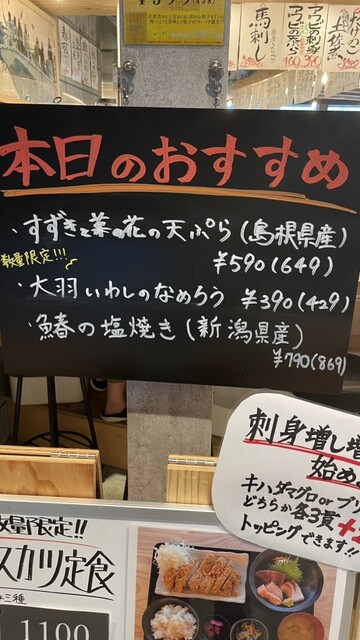 馬刺し
アワビの刺身
アワビの天ぷら
460
390
本日のおすすめ
・すずきと菜の花の天ぷら(島根県産)
¥590(649)
数量限定!!!
・大羽いわしのなめろう ¥390(429)
・鰆の塩焼き(新潟県産)
¥790(869)
刺身増し増
始め
キハダマグロorブリ
どちらか各3貫
トッピングできます!!
数量限定!!
スカツ定食
三種
1100